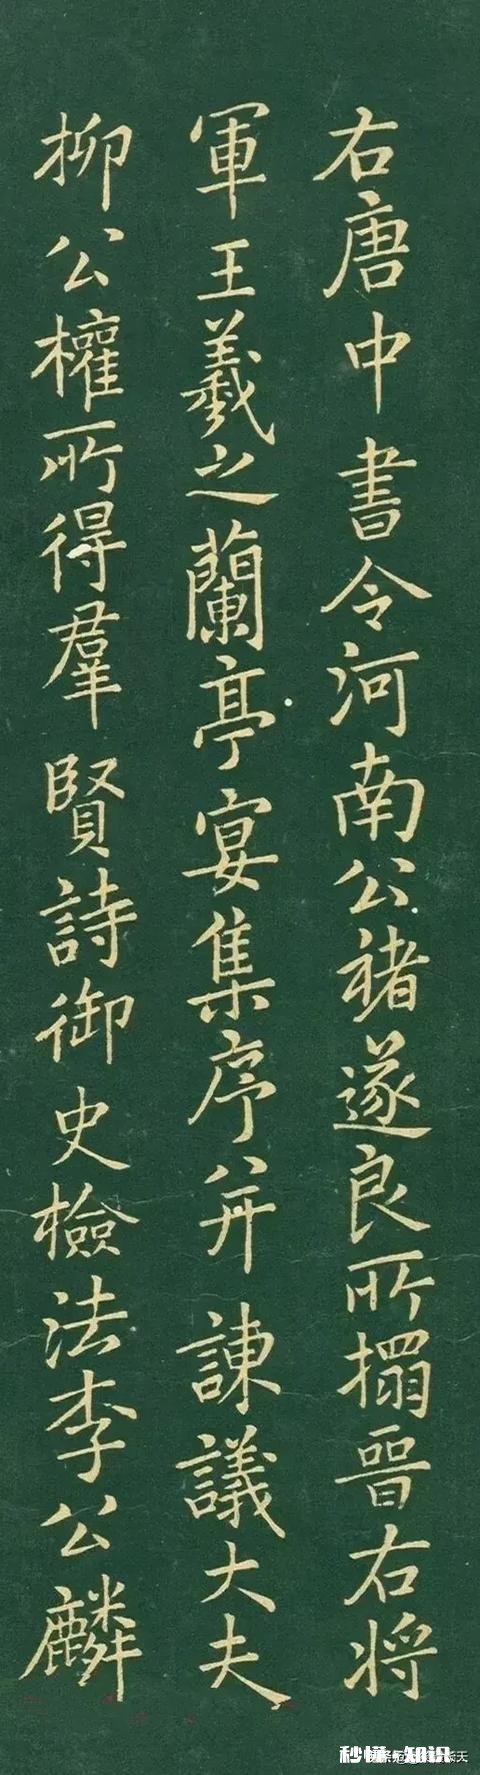 右唐中書令河南公褚遂良所搨晉右將
軍王羲之蘭亭宴集序并諫議大夫
柳公權所得羣賢詩御史檢法李公麟
秒懂·知识